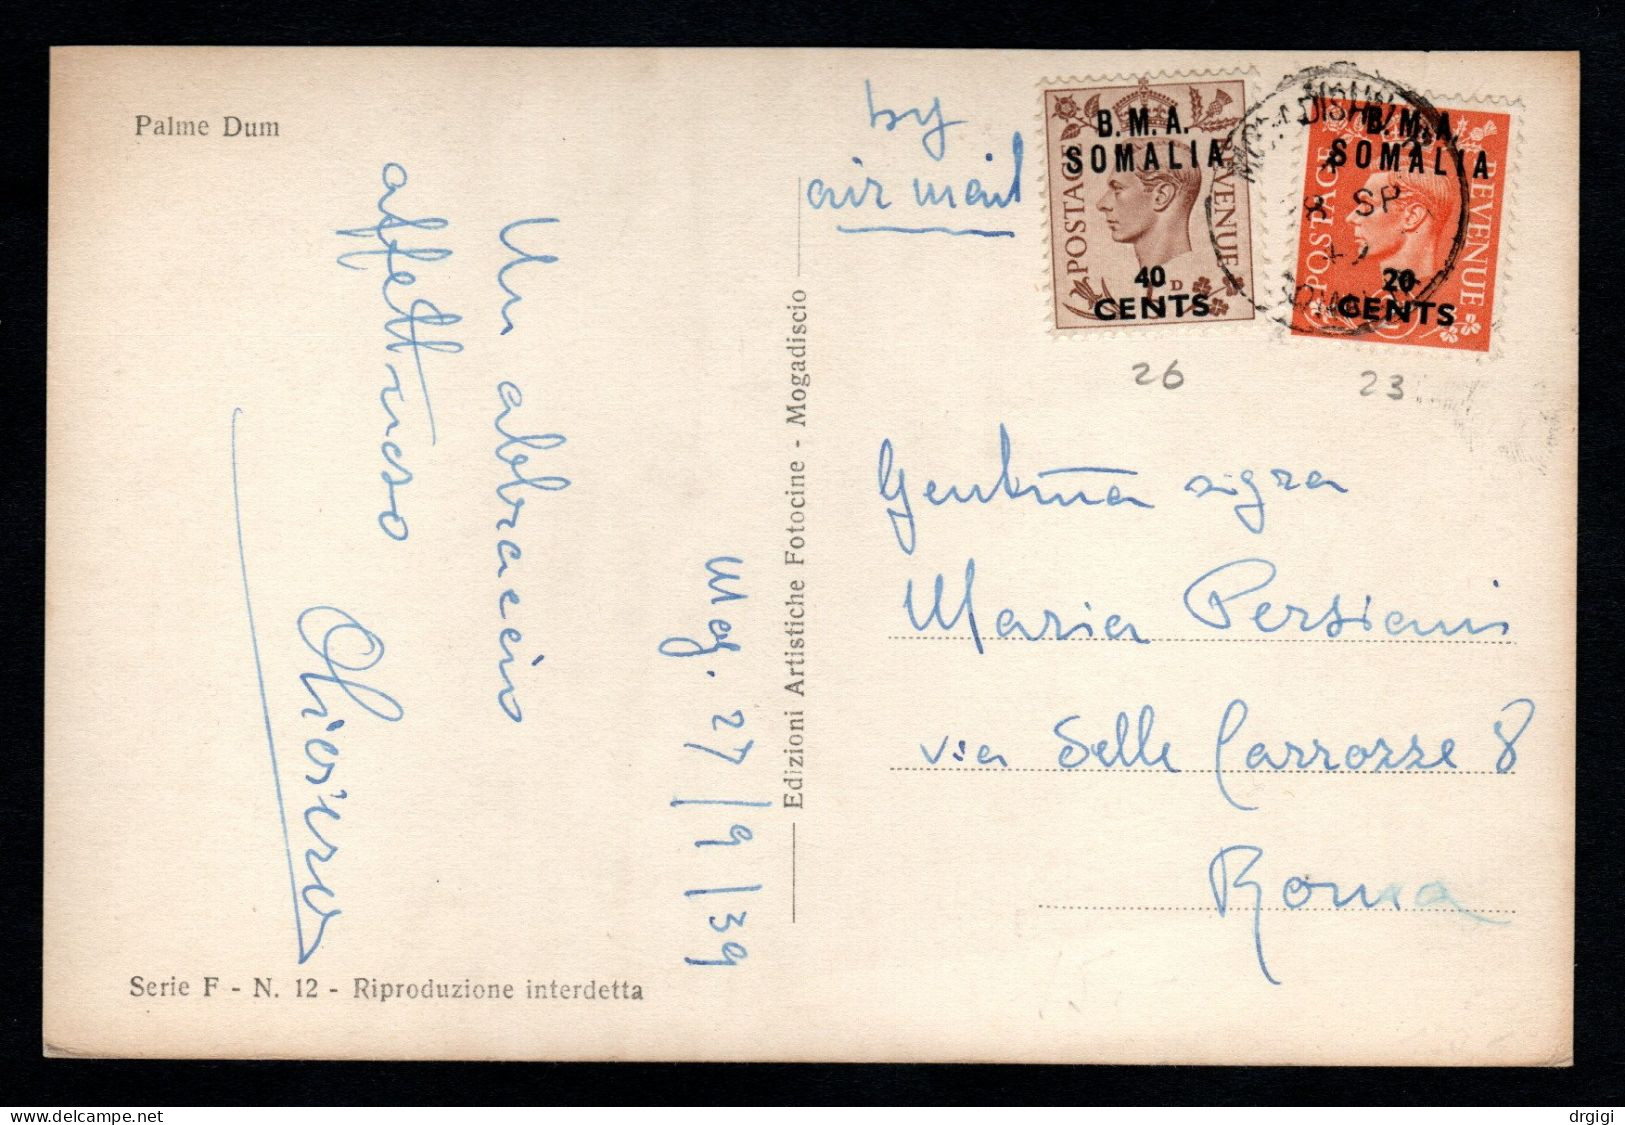 Palme Dum
by
air mail
B. M. A.
SOMALIA
POSTAGE
REVENUE
40
CENTS
D
B. M. A.
SOMALIA
POSTAGE
REVENUE
20
CENTS
8 SP
26
23
Un abbraccio
affettuoso
Mag. 27/9/39
Edizioni Artistiche Fotocine - Mogadiscio
Maria Persiani
via delle Carrozze 8
Roma
Serie F - N. 12 - Riproduzione interdetta
drgigi